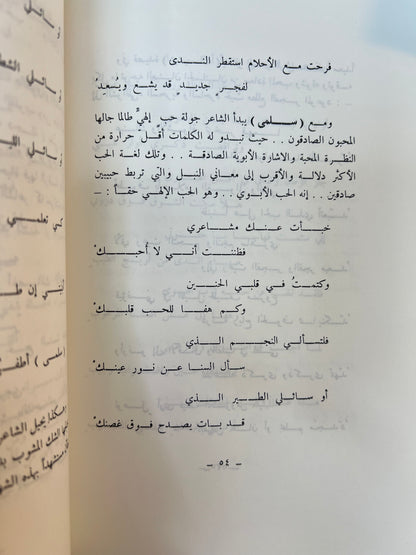 فرحت مع الأحلام استقطر الندى
لفجرٍ جديدٍ قد يشع ويُسعِدُ
ومع (سلمى) يبدأ الشاعر جولة حب إلهيٍّ طالما جالها
المحبون الصادقون .. حيث تبدو له الكلمات أقل حرارة من
النظرة المحبة والاشارة الأبوية الصادقة .. وتلك لغة الحب
الأكثر دلالة والأقرب إلى معاني النبل والتي تربط حبيبين
صادقين .. إنه الحب الأبوي .. وهو الحب الإلهي حقاً : ــ
خبأت عنك مشاعري
فظننت أنني لا أُحبكْ
وكتمتُ في قلبي الحنين
وكم هفا للحب قلبكْ
فلتسألي النجم الذي
سأل السنا عن نور عينكْ
أو سائلي الطير الذي
قد بات يصدح فوق غصنكْ
ــ ٥٤ ــ
و سائلي
كي تعلمي
إن
(سلمى) أطفى
وهكذا يحيل الشاعر
الشك المشوب
بهذه